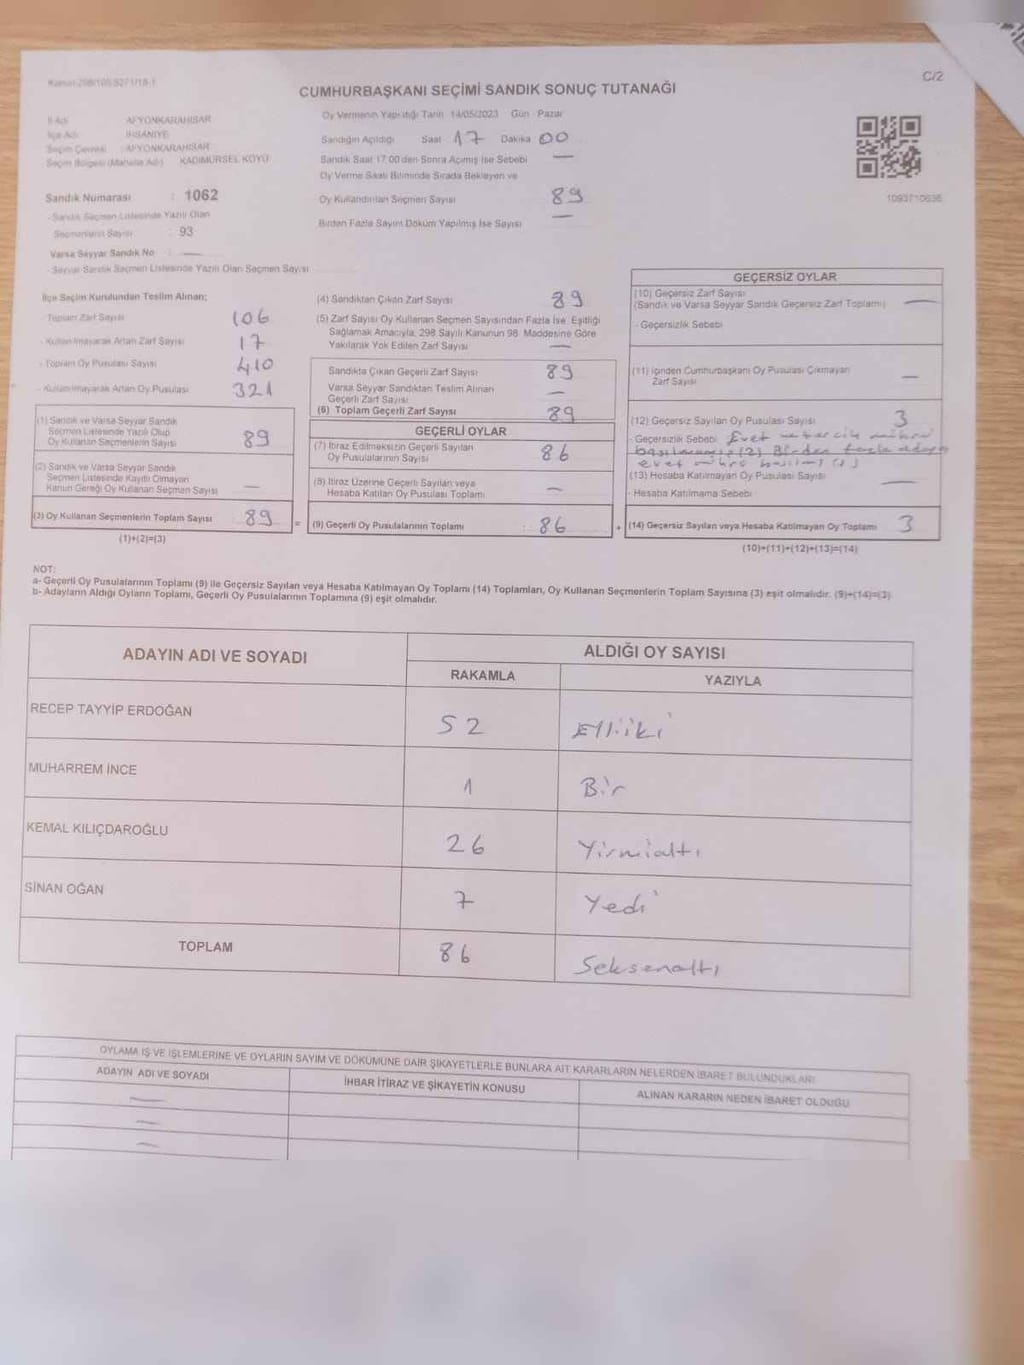 C/2
CUMHURBAŞKANI SEÇİMİ SANDIK SONUÇ TUTANAĞI
İl Adı : AFYONKARAHİSAR
İlçe Adı : İHSANİYE
Seçim Çevresi : AFYONKARAHİSAR
Seçim Bölgesi (Mahalle Adı) : KADIMÜRSEL KÖYÜ
Sandık Numarası : 1062
- Sandık Seçmen Listesinde Yazılı Olan
Seçmenlerin Sayısı : 93
Varsa Seyyar Sandık No : —
- Seyyar Sandık Seçmen Listesinde Yazılı Olan Seçmen Sayısı
Oy Vermenin Yapıldığı Tarih 14/05/2023 Gün Pazar
Sandığın Açıldığı Saat 17 Dakika 00
Sandık Saat 17:00'den Sonra Açılmış İse Sebebi —
Oy Verme Saati Bitiminde Sırada Bekleyen ve
Oy Kullandırılan Seçmen Sayısı 89
Birden Fazla Sayım Döküm Yapılmış İse Sayısı —
1093710636
İlçe Seçim Kurulundan Teslim Alınan;
- Toplam Zarf Sayısı 106
- Kullanılmayarak Artan Zarf Sayısı 17
- Toplam Oy Pusulası Sayısı 410
- Kullanılmayarak Artan Oy Pusulası 321
(1) Sandık ve Varsa Seyyar Sandık
Seçmen Listesinde Yazılı Olup
Oy Kullanan Seçmenlerin Sayısı 89
(2) Sandık ve Varsa Seyyar Sandık
Seçmen Listesinde Kayıtlı Olmayan
Kanun Gereği Oy Kullanan Seçmen Sayısı —
(3) Oy Kullanan Seçmenlerin Toplam Sayısı 89
(1)+(2)=(3)
(4) Sandıktan Çıkan Zarf Sayısı 89
(5) Zarf Sayısı Oy Kullanan Seçmen Sayısından Fazla İse, Eşitliği
Sağlamak Amacıyla, 298 Sayılı Kanunun 98. Maddesine Göre
Yakılarak Yok Edilen Zarf Sayısı —
Sandıkta Çıkan Geçerli Zarf Sayısı 89
Varsa Seyyar Sandıktan Teslim Alınan
Geçerli Zarf Sayısı —
(6) Toplam Geçerli Zarf Sayısı 89
GEÇERLİ OYLAR
(7) İtiraz Edilmeksizin Geçerli Sayılan
Oy Pusulalarının Sayısı 86
(8) İtiraz Üzerine Geçerli Sayılan veya
Hesaba Katılan Oy Pusulası Toplamı —
= (9) Geçerli Oy Pusulalarının Toplamı : 86
GEÇERSİZ OYLAR
(10) Geçersiz Zarf Sayısı
(Sandık ve Varsa Seyyar Sandık Geçersiz Zarf Toplamı) —
- Geçersizlik Sebebi
(11) İçinden Cumhurbaşkanı Oy Pusulası Çıkmayan
Zarf Sayısı —
(12) Geçersiz Sayılan Oy Pusulası Sayısı 3
- Geçersizlik Sebebi Evet ve tercih mührü
basılmamış (2) Birden fazla adaya
evet mührü basılmış (1)
(13) Hesaba Katılmayan Oy Pusulası Sayısı —
- Hesaba Katılmama Sebebi
+ (14) Geçersiz Sayılan veya Hesaba Katılmayan Oy Toplamı 3
(10)+(11)+(12)+(13)=(14)
NOT:
a- Geçerli Oy Pusulalarının Toplamı (9) ile Geçersiz Sayılan veya Hesaba Katılmayan Oy Toplamı (14) Toplamları, Oy Kullanan Seçmenlerin Toplam Sayısına (3) eşit olmalıdır. (9)+(14)=(3)
b- Adayların Aldığı Oyların Toplamı, Geçerli Oy Pusulalarının Toplamına (9) eşit olmalıdır.
ADAYIN ADI VE SOYADI
ALDIĞI OY SAYISI
RAKAMLA YAZIYLA
RECEP TAYYİP ERDOĞAN 52 Elliiki
MUHARREM İNCE 1 Bir
KEMAL KILIÇDAROĞLU 26 Yirmialtı
SİNAN OĞAN 7 Yedi
TOPLAM 86 Seksenaltı
OYLAMA İŞ VE İŞLEMLERİNE VE OYLARIN SAYIM VE DÖKÜMÜNE DAİR ŞİKAYETLERLE BUNLARA AİT KARARLARIN NELERDEN İBARET BULUNDUKLARI
ADAYIN ADI VE SOYADI İHBAR İTİRAZ VE ŞİKAYETİN KONUSU ALINAN KARARIN NEDEN İBARET OLDUĞU
—
—
—